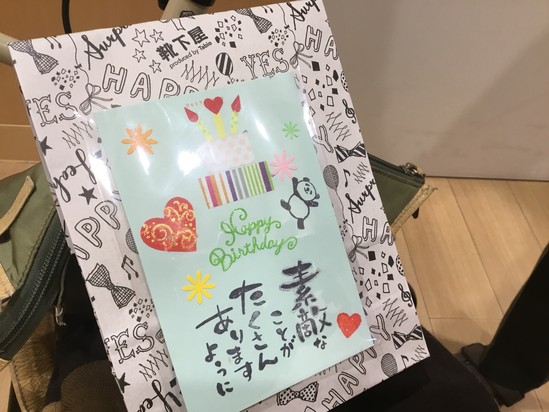 Surprise
靴下屋
produced by Tabio
YES
HAPPY
YES
Happy
Birthday
素敵な
ことが
たくさん
あります
ように
HAPPY
HAPPY